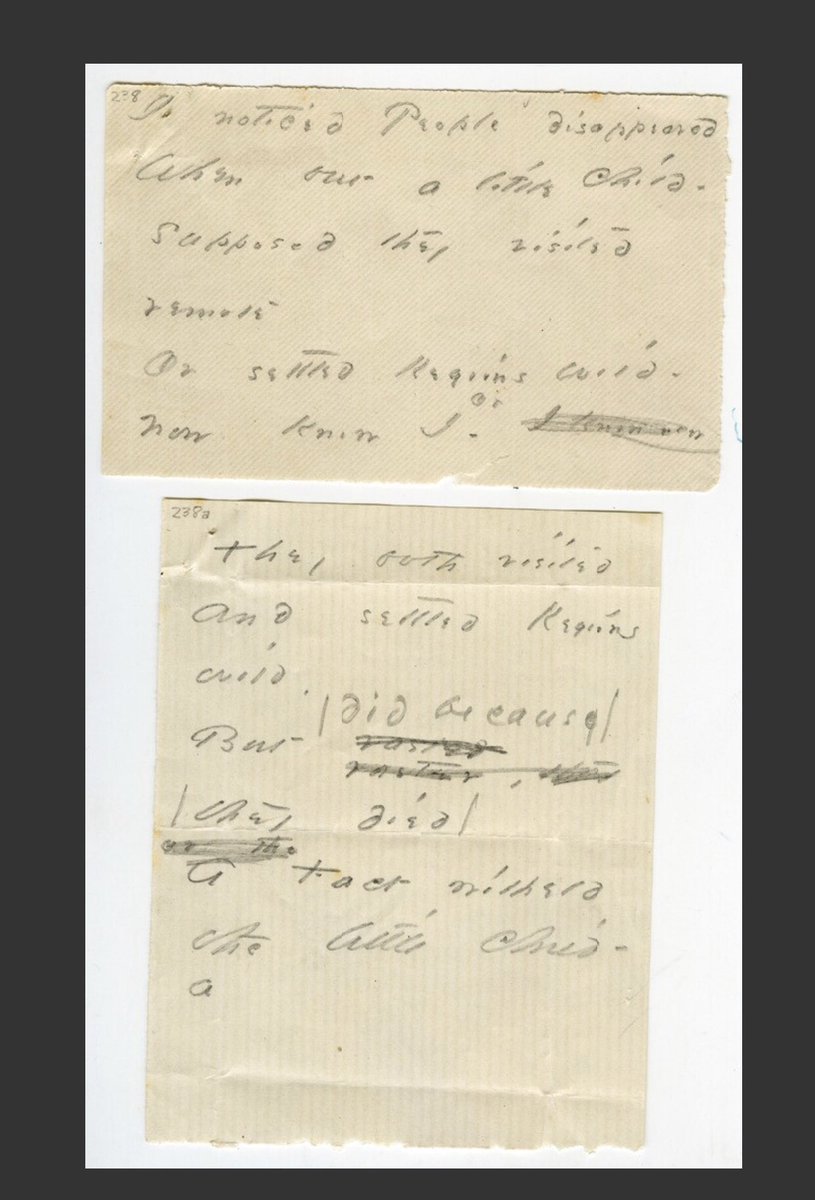 238
I noticed People disappeared
When but a little Child -
Supposed they visited
remote
Or settled Regions wild -
Or
Now know I - I know now
238a
They both visited
And settled Regions
wild
did because
But
they died
A Fact witheld
the little Child -
a